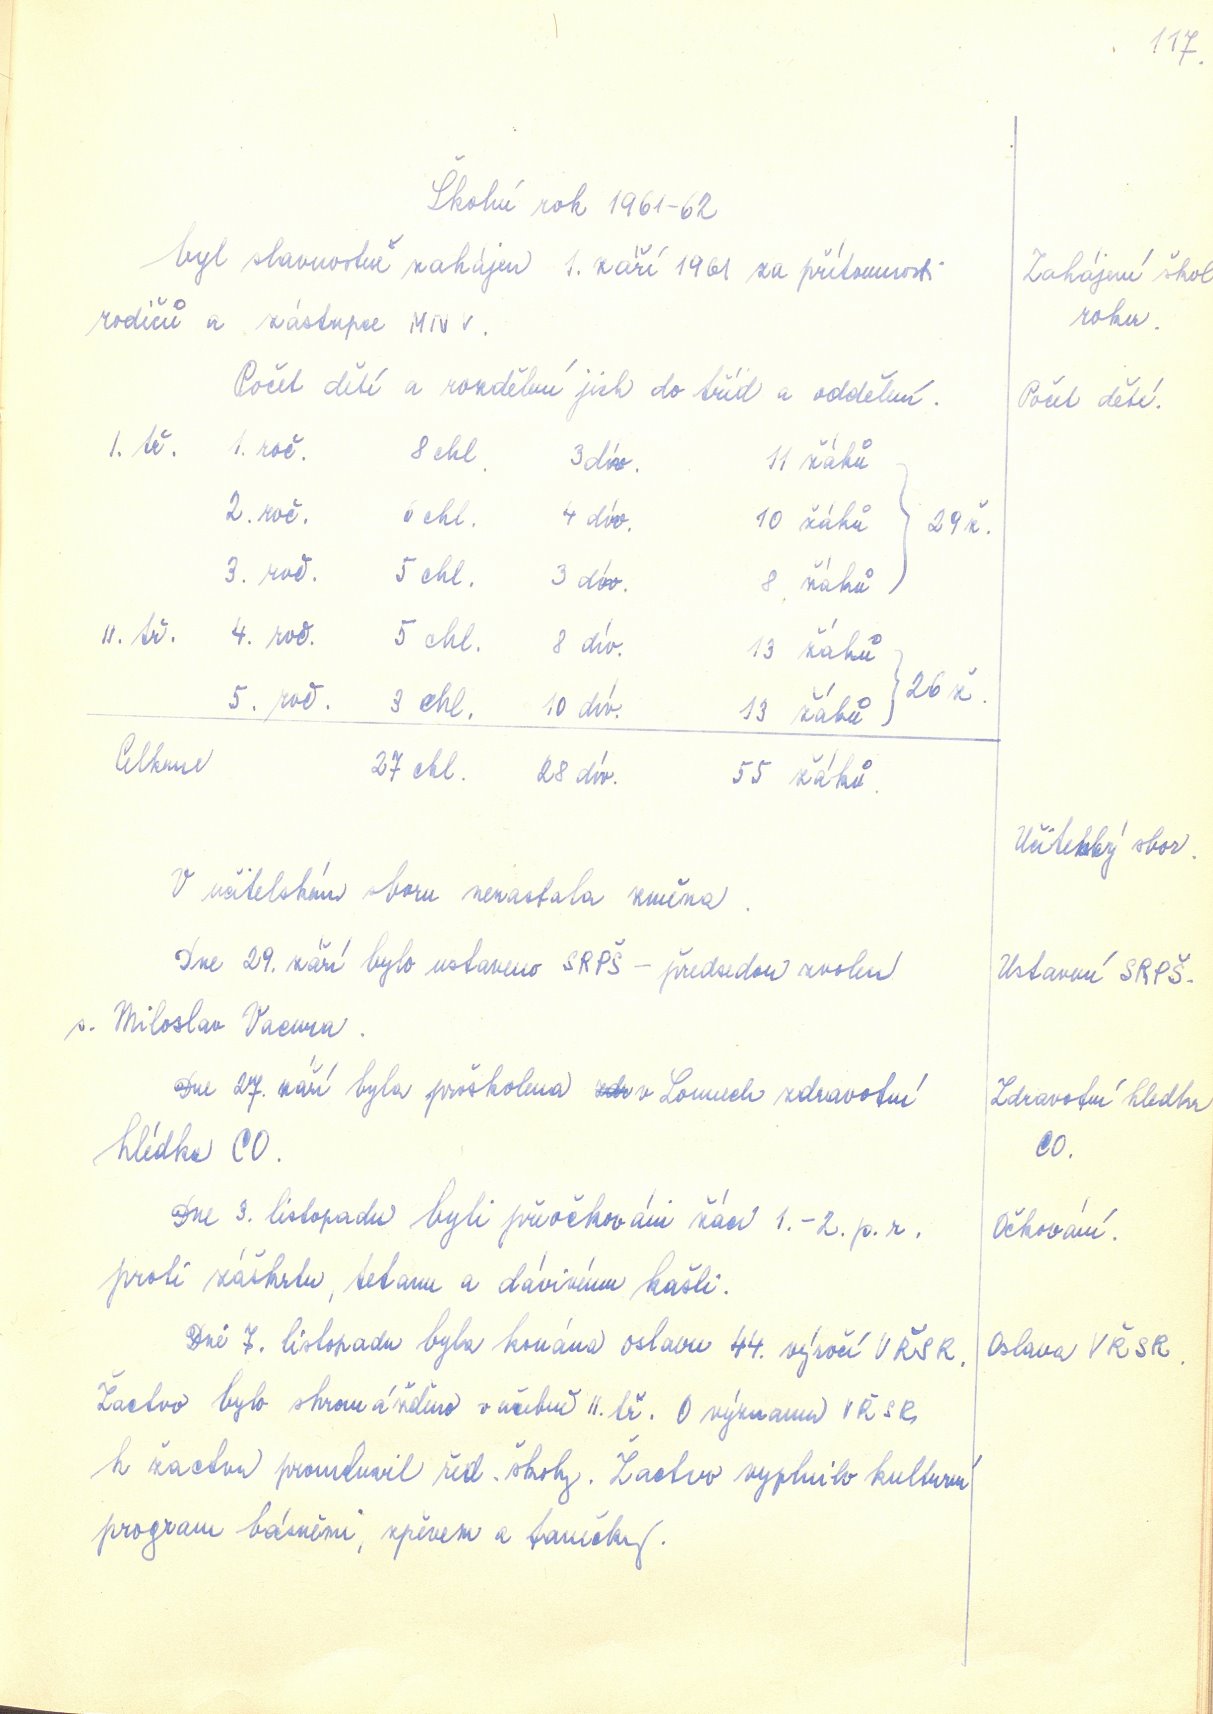 117.
Školní rok 1961-62
byl slavnostně zahájen 1. září 1961 za přítomnosti
Zahájení škol
rodičů a zástupce MNV.
roku.
Počet dětí a rozdělení jich do tříd a oddělení.
Počet dětí.
I. tř. 1. roč. 8 chl. 3 div. 11 žáků
2. roč. 6 chl. 4 div. 10 žáků 29 ž.
3. roč. 5 chl. 3 div. 8 žáků
II. tř. 4. roč. 5 chl. 8 dív. 13 žáků
5. roč. 3 chl. 10 dív. 13 žáků 26 ž.
Celkem 27 chl. 28 dív. 55 žáků.
Učitelský sbor.
V učitelském sboru nenastala změna.
Dne 29. září bylo ustaveno SRPŠ – předsedou zvolen
Ustavení SRPŠ.
s. Miloslav Vacura.
Dne 27. září byla proškolena v Lomech zdravotní
Zdravotní hlídka
hlídka CO.
CO.
Dne 3. listopadu byli přeočkováni žáci 1.-2. p. r.
Očkování.
proti záškrtu, tetanu a dávivému kašli.
Dne 7. listopadu byla konána oslava 44. výročí VŘSR.
Oslava VŘSR.
Žactvo bylo shromážděno v učebně II. tř. O významu VŘSR
k žactvu promluvil řed. školy. Žactvo vyplnilo kulturní
program básněmi, zpěvem a tanečky.